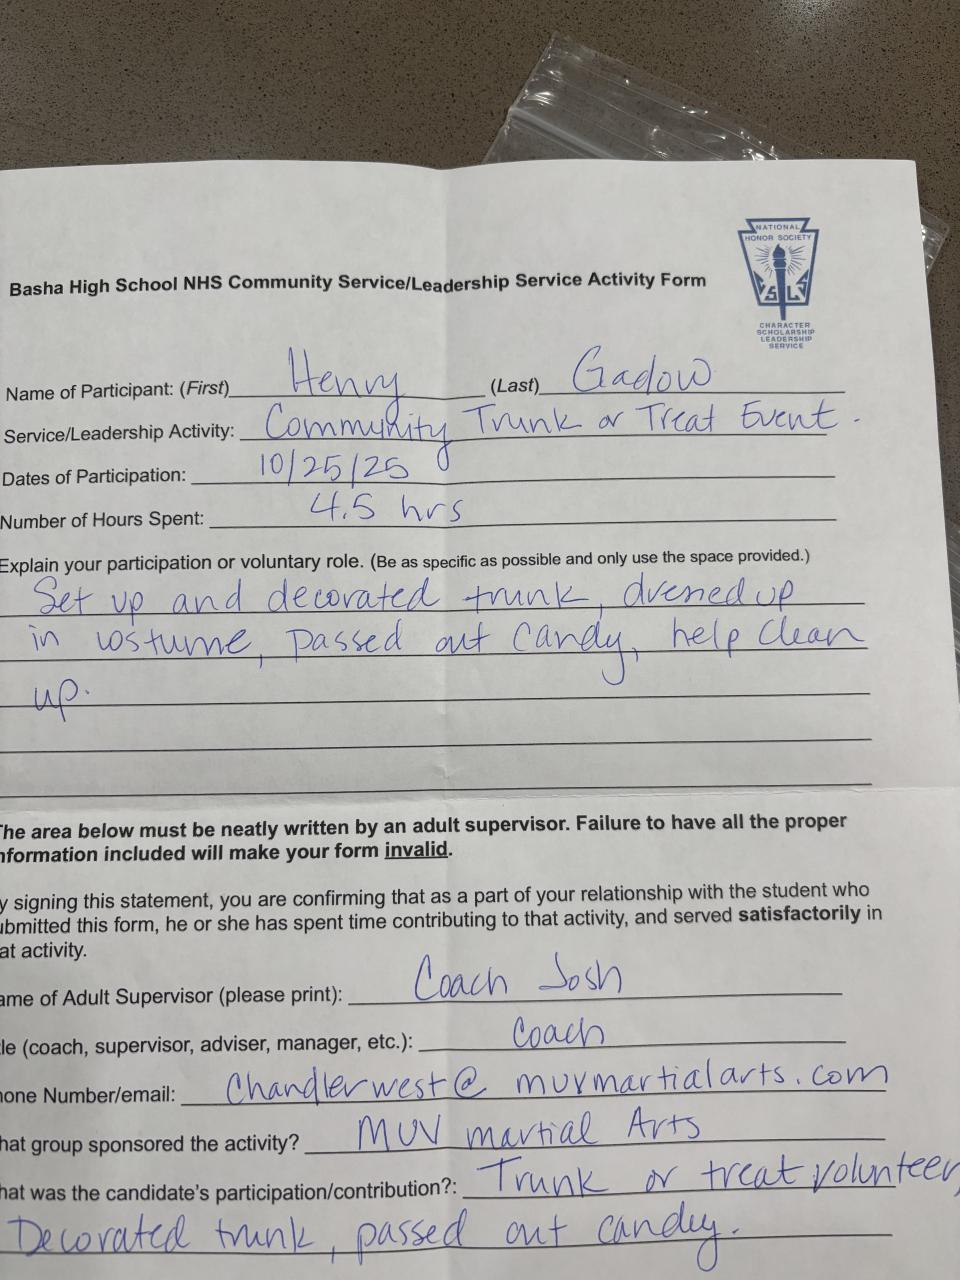 NATIONAL
HONOR SOCIETY
CSLS
CHARACTER
SCHOLARSHIP
LEADERSHIP
SERVICE
Basha High School NHS Community Service/Leadership Service Activity Form
Name of Participant: (First) Henry (Last) Gadow
Service/Leadership Activity: Community Trunk or Treat Event.
Dates of Participation: 10/25/25
Number of Hours Spent: 4.5 hrs
Explain your participation or voluntary role. (Be as specific as possible and only use the space provided.)
Set up and decorated trunk, dressed up
in costume, passed out candy, help clean
up.
The area below must be neatly written by an adult supervisor. Failure to have all the proper
nformation included will make your form invalid.
y signing this statement, you are confirming that as a part of your relationship with the student who
ubmitted this form, he or she has spent time contributing to that activity, and served satisfactorily in
at activity.
ame of Adult Supervisor (please print): Coach Josh
le (coach, supervisor, adviser, manager, etc.): Coach
one Number/email: Chandlerwest@muvmartialarts.com
hat group sponsored the activity? MUV martial Arts
hat was the candidate's participation/contribution?: Trunk or treat volunteer,
Decorated trunk, passed out candy.